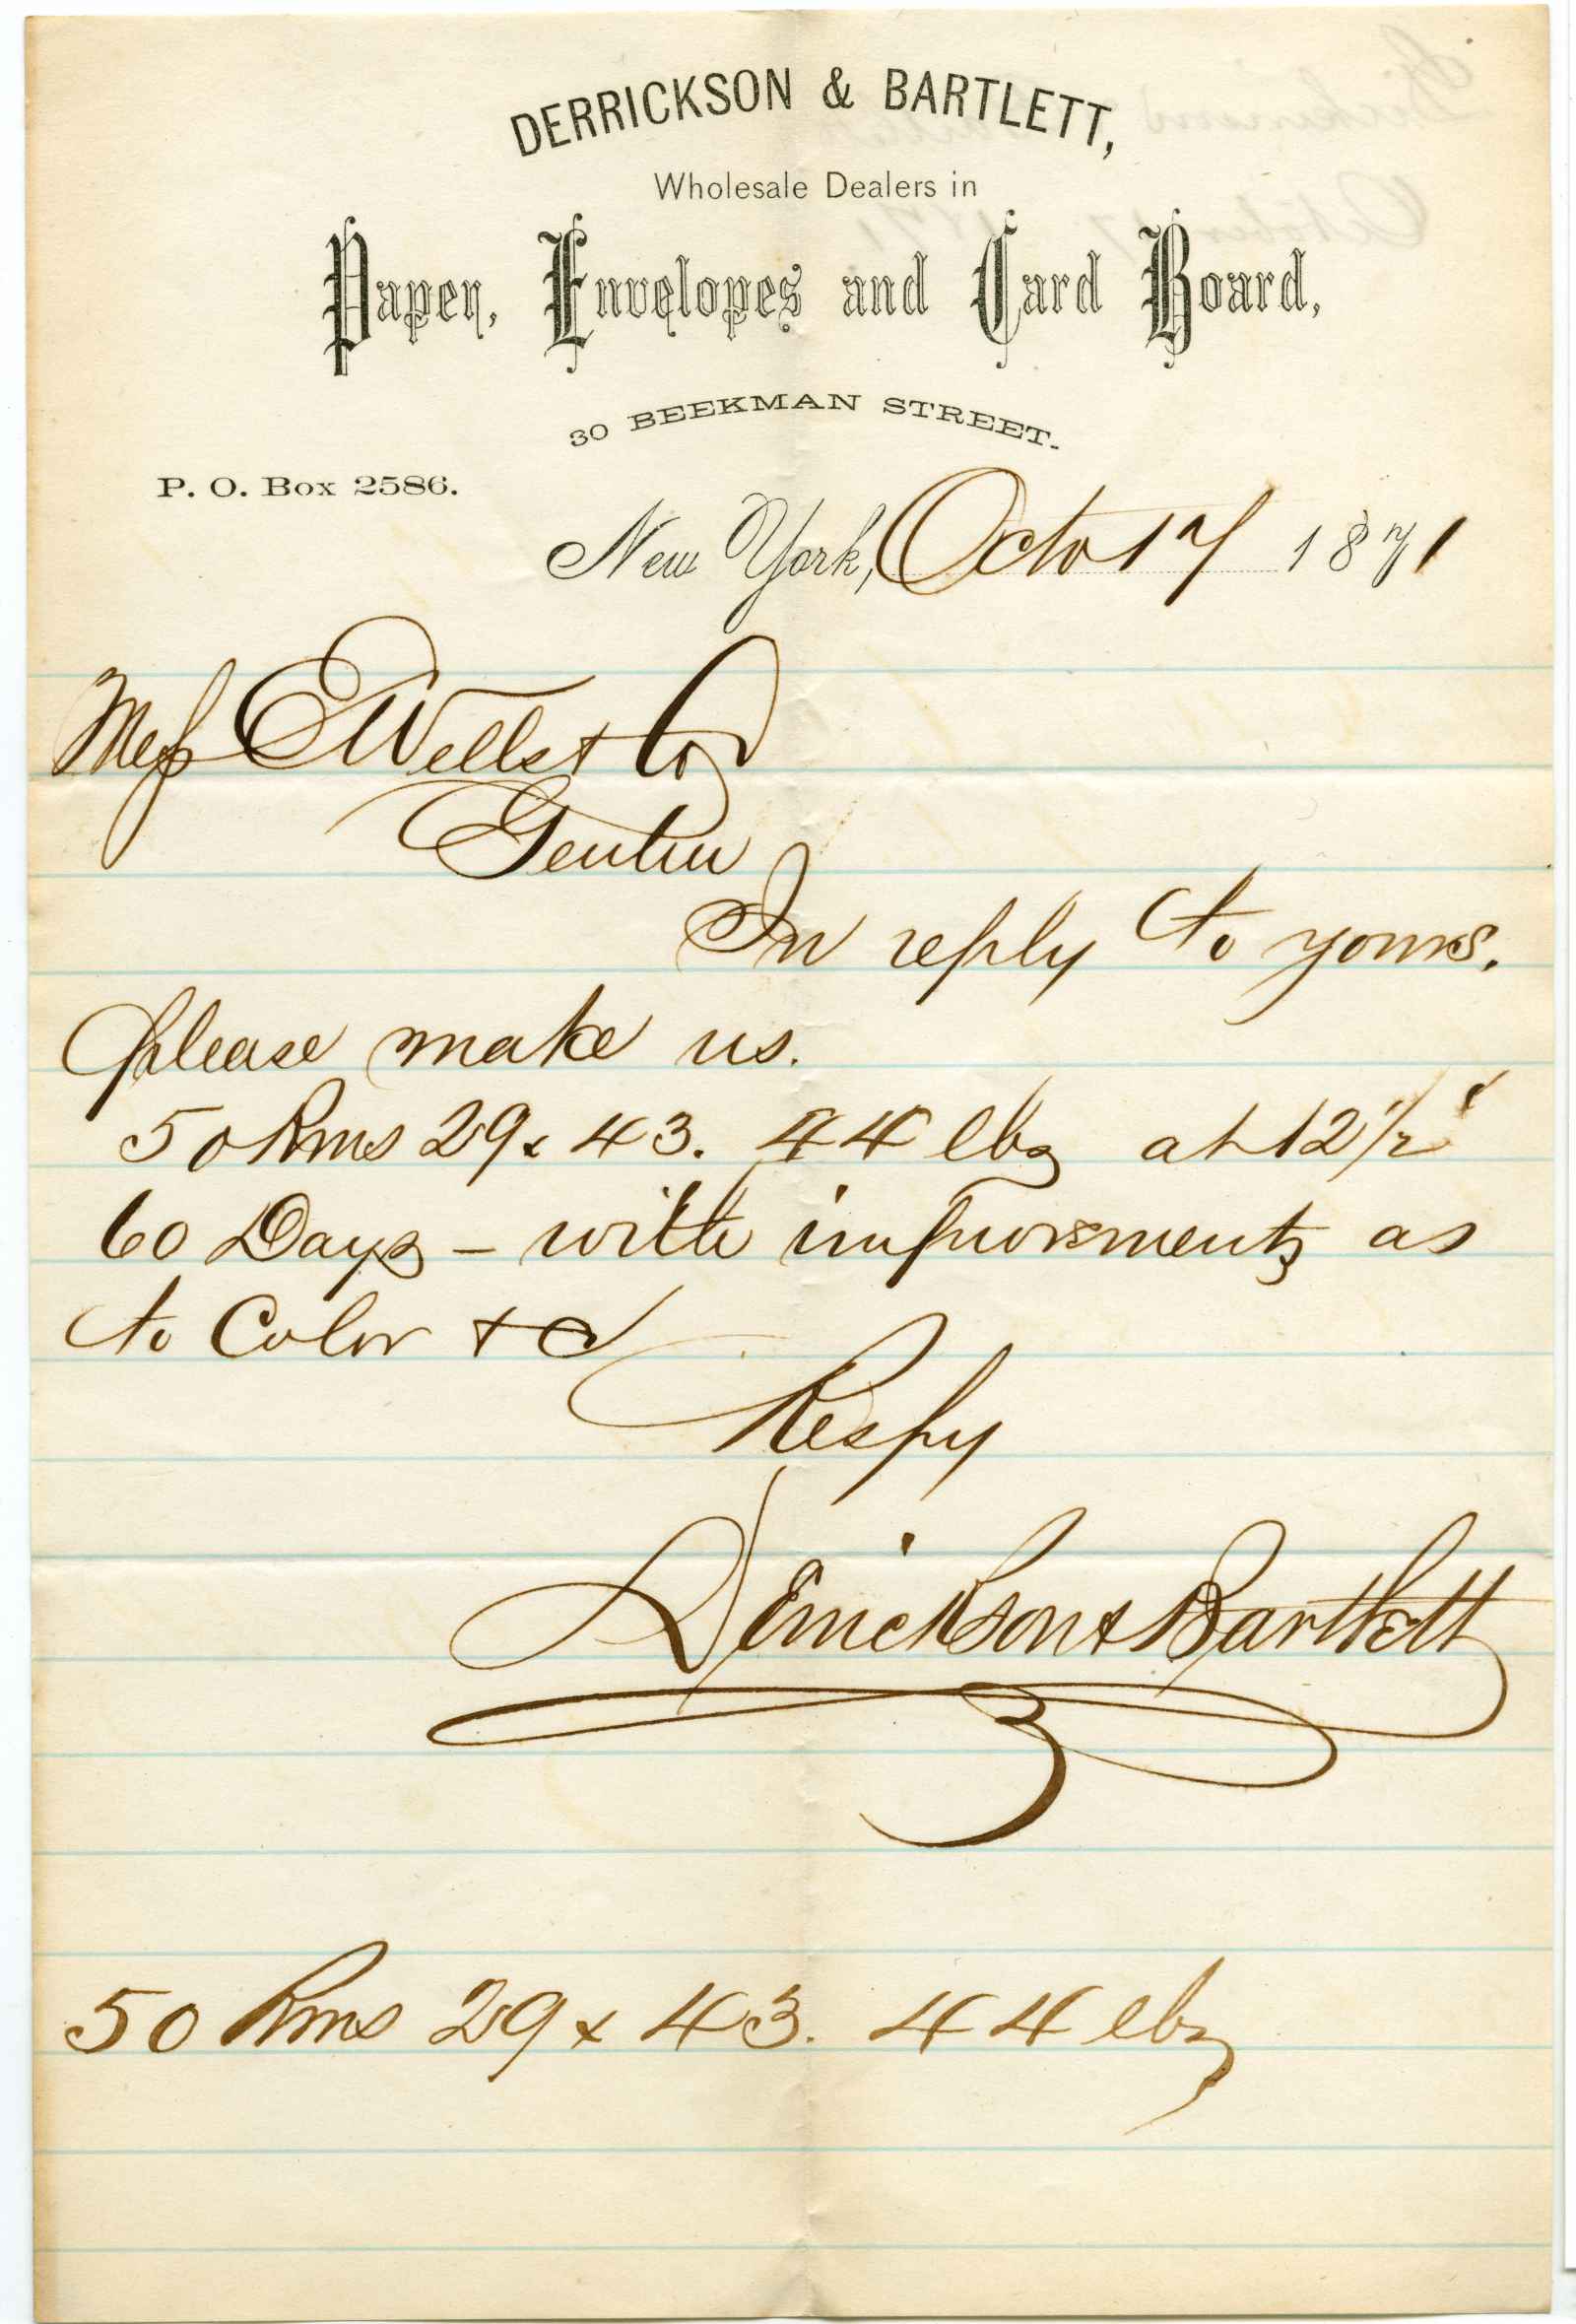 DERRICKSON & BARTLETT,
Wholesale Dealers in
Paper, Envelopes and Card Board,
30 BEEKMAN STREET.
P. O. Box 2586.
New York, Octo 17 1871
Mess E Wells & Co
Gentm
In reply to yours.
please make us.
50 Rms 29 x 43. 44 lbs at 12 1/2 ¢
60 Days – with improvements as
to Color & c
Respy
Derrickson & Bartlett
50 Rms 29 x 43. 44 lbs